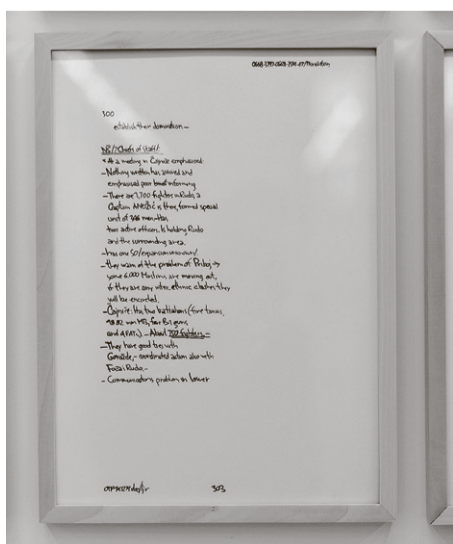 300
establish their domination –
/Chiefs of Staff/
* At a meeting in Čajniče emphasised:
– Nothing written has arrived and
emphasised poor brief informing
– There are 1,700 fighters in Rudo, a
Captain is there, formed special
unit of men. Has
two active officers. Is holding Rudo
and the surrounding area.
– has one
– they warn of the problem of Priboj →
some 6,000 Muslims are moving out,
if they are any inter-ethnic clashes they
will be encircled.
– Čajniče: Has two battalions (five tanks,
82 mm four B-1 guns,
and – About 700 fighters –
– They have good ties with
Goražde, – coordinated action also with
Foča i Rudo –
– Communications problem in lower
303